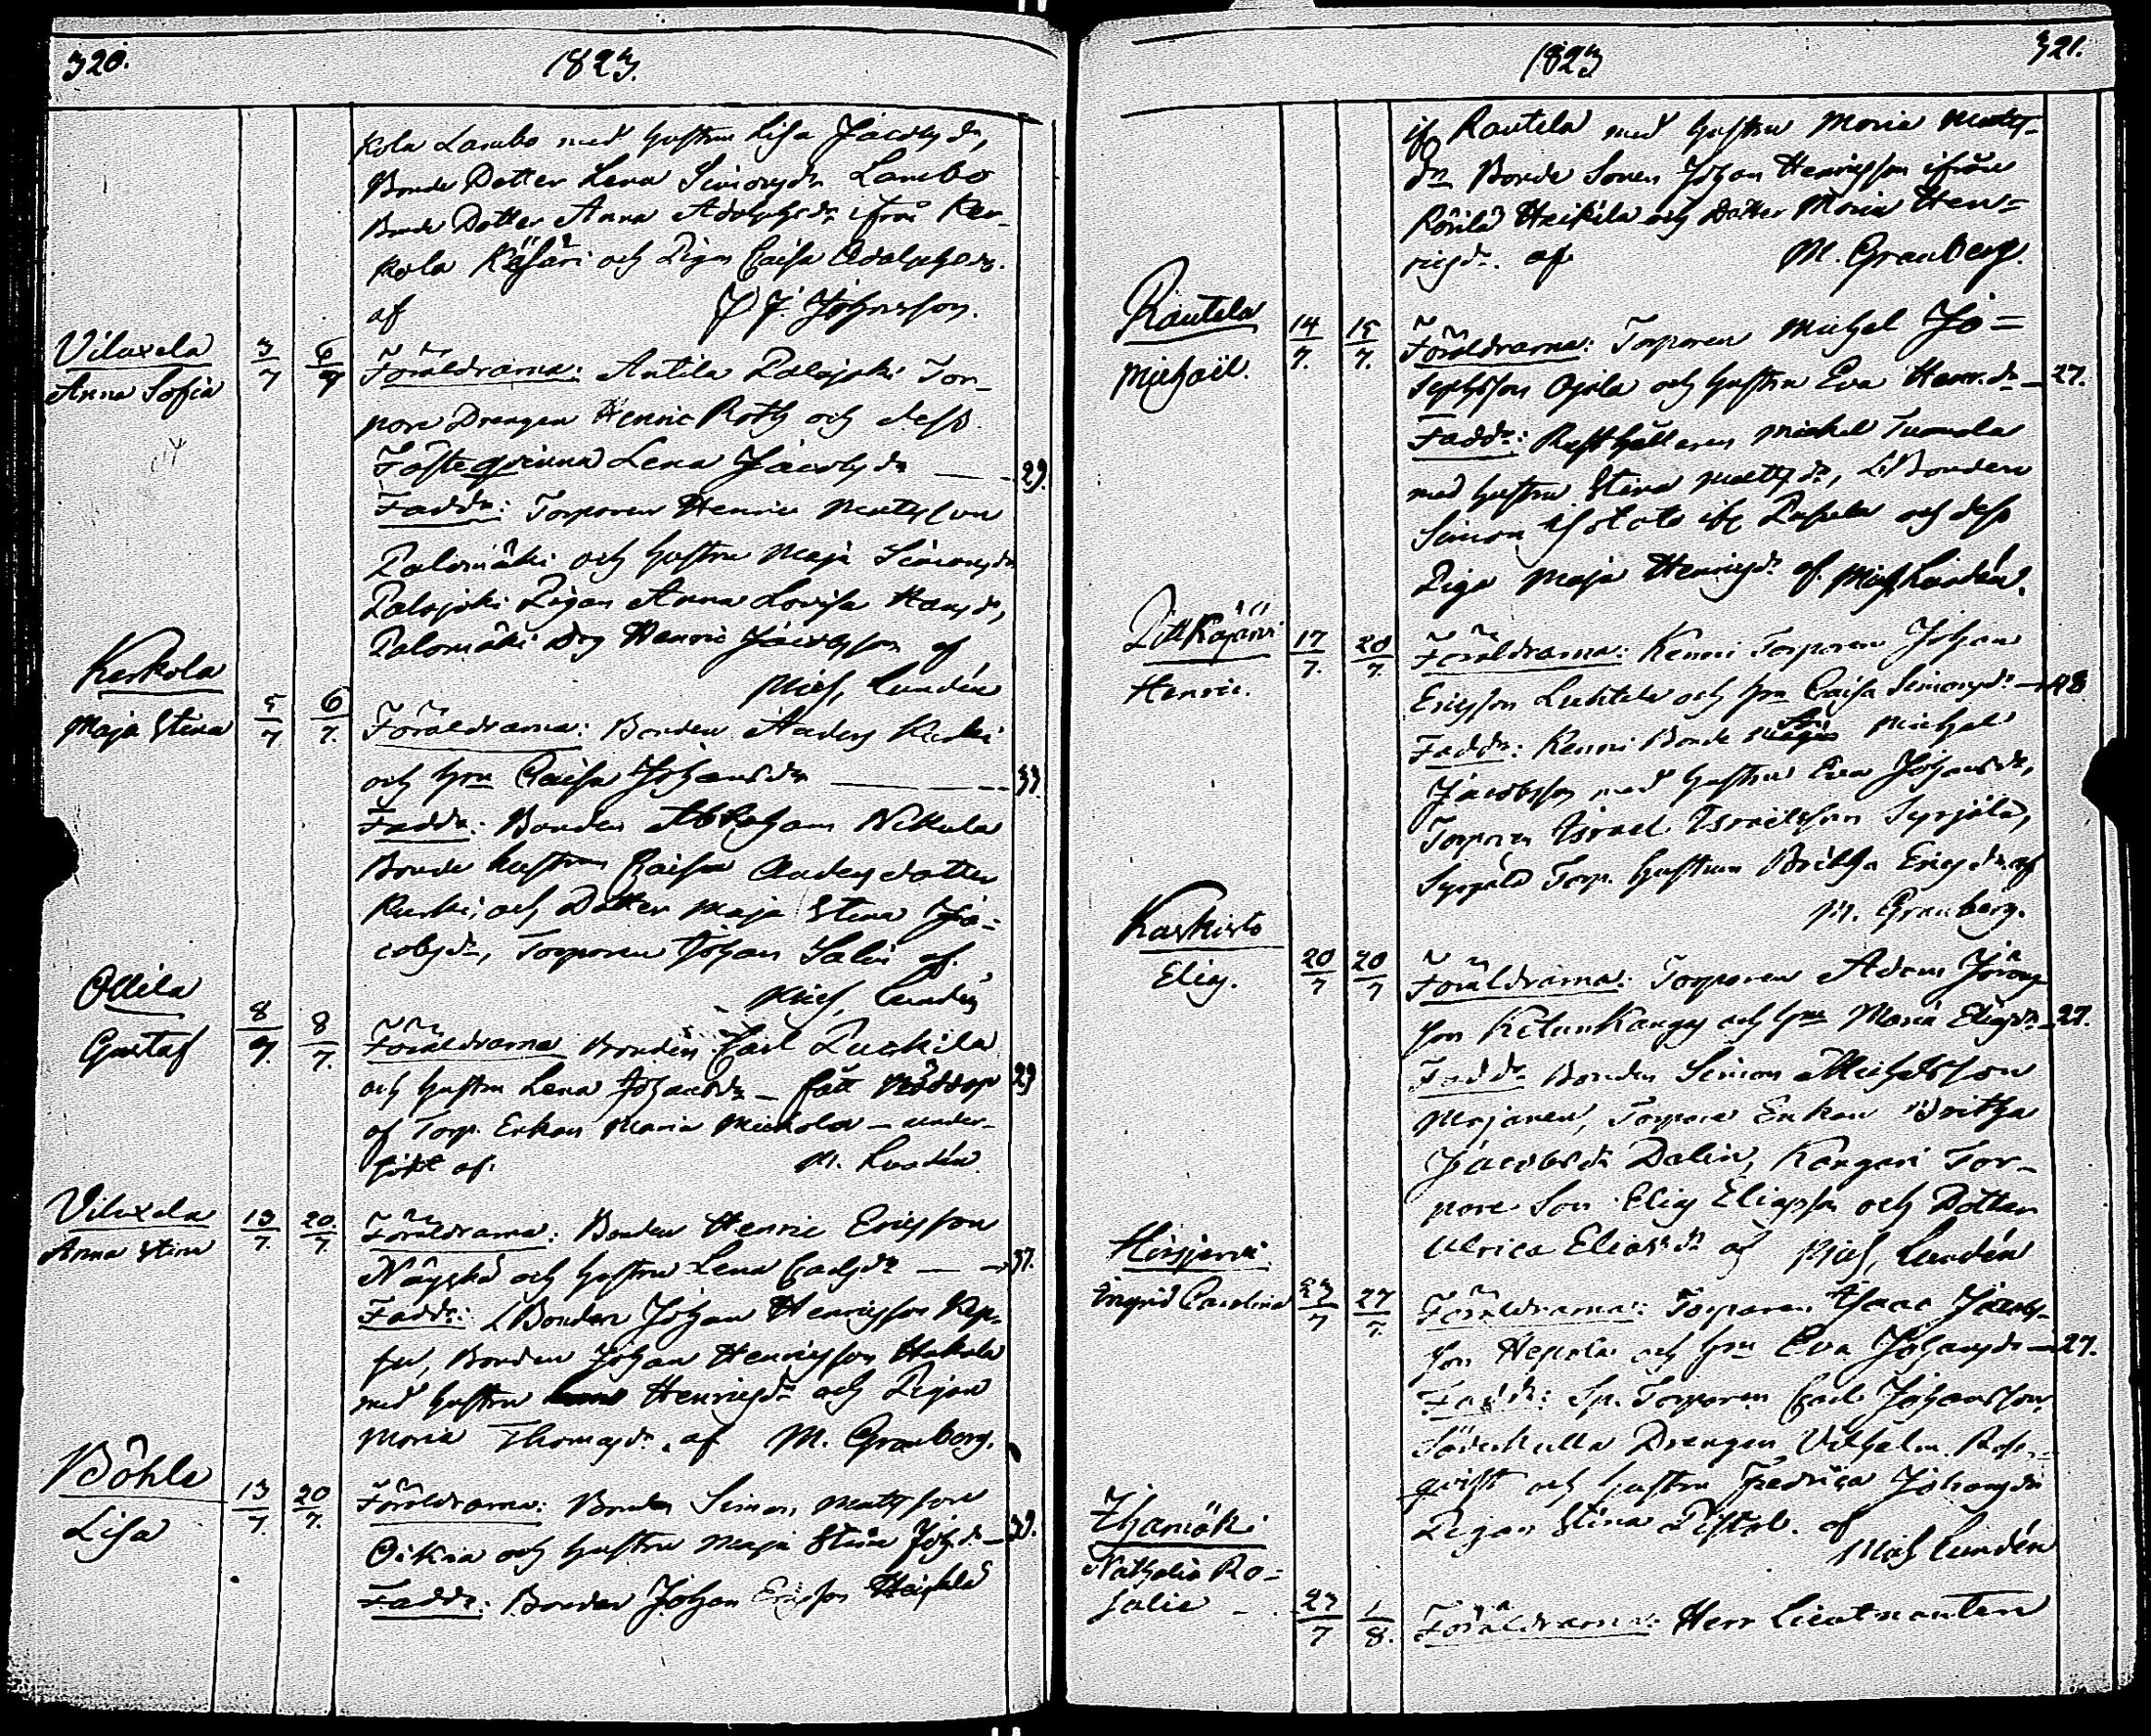 320.
1823.
kola Lambo med hustru Lisa Jacobsdr,
Bonde Dotter Lena Simonsdr Lambo
Bonde Dotter Anna Adolphsdr ifrån Ker-
kola Käfäri och Pigan Caisa Adolphsdr.
af J. Johnsson.
Viluxela
Anna Sofia
3/7
6/7
Föräldrarna: Antila Palojoki Tor-
pare Drengen Henric Roth och dess
Fästeqvinna Lena Jacobsdr — 29.
Faddr: Torparen Henric Mattsson
Palomäki och hustru Maja Simonsdr
Palojoki Pigan Anna Lovisa Hansdr,
Palomäki Drg Henric Jacobsson af
Mich. Lundén
Kerkola
Maja Stina
5/7
6/7.
Föräldrarna: Bonden Anders Kurki
och hru Caisa Johansdr — 33.
Faddr: Bonden Abraham Nikula
Bonde hustrun Caisa Andersdotter
Kurki, och Dotter Maja Stina Ja-
cobsdr, Torparen Johan Salin af.
Mich. Lundén
Ollila
Gustaf
8/7.
8/7.
Föräldrarna Bonden Carl Puckila
och hustru Lena Johansdr — fått Nöddop 29
af Torp. Enkan Maria Mickola — under-
sökt af. M. Lundén.
Viluxela
Anna Stina
13/7.
20/7.
Föräldrarna: Bonden Henric Ericsson
och hustru Lena Carlsdr — 37.
Faddr: Bonden Johan Henricsson
Bonden Johan Henricsson Hakola
med hustru Henricsdr och Pigan
Maria Thomasdr. af M. Granberg.
Böhle
Lisa
13/7.
20/7.
Föräldrarna: Bonden Simon Mattsson
Oikia och hustru Maja Stina Johsdr — 39.
Faddr: Bonden Johan Ericsson Heickilä
1823
321.
if Rautela med hustru Maria Matts-
dr Bonde Sonen Johan Henricsson ifrån
Rörilä Heikilä och Dotter Maria Hen-
ricsdr. af M. Granberg.
Rautela
Michaël.
14/7.
15/7.
Föräldrarna: Torparen Michel Jo-
sephsson Ojala och hustru Eva Henr.dr — 27.
Faddr: Rusthållaren Michel Tuomola
med hustru Stina Mattsdr, Bonden
Simon Isotalo och dess
Piga Maja Henricsdr af. Mich Lundén.
Pitkäjärvi
Henric.
17/7.
20/7.
Föräldrarna: Kenni Torparen Johan
Ericsson Luhtela och hru Caisa Simonsdr — 48
Faddr: Kenni Bonde Michel
Jacobsson med hustru Eva Johansdr,
Torparen Israel Israelsson Syrjälä,
Syrjälä Torp. Hustrun Britha Ericsdr af
M. Granberg.
Kaskisto
Elias.
20/7
20/7
Föräldrarna: Torparen Adam Jöran-
son Ketunkangas och hru Maria Eliasdr — 27.
Faddr Bonden Simon Michelsson
Majanen, Torpare Enkan Britha
Jacobsdr Dalin, Kangari Tor-
pare Son Elias Eliasson och Dotter
Ulrica Eliasdr af Mich. Lundén
Hirsjärvi
Ingrid Carolina
23/7
27/7.
Föräldrarna: Torparen Isaac Jacobs-
son Hepola och hru Eva Johansdr — 27.
Faddr: Sp. Torparen Carl Johansson
Söderkulla Drengen Vilhelm Rosen-
qvist och hustru Fredrica Johansdr
Pigan Stina Pistol. af
Mich Lundén
Ihamäki
Nathalia Ro-
salie —
27/7
1/8.
Föräldrarna: Herr Lieutnanten